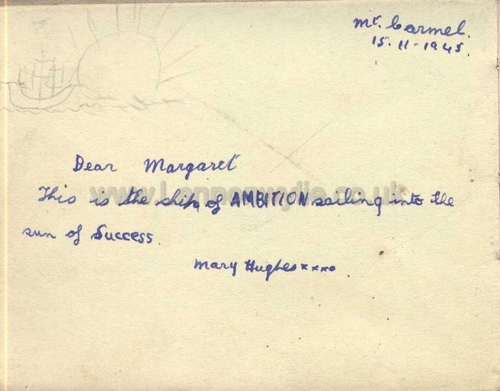 Mt. Carmel.
15.11-1945.
Dear Margaret
This is the ship of AMBITION sailing into the
sun of Success.
Mary Hughes xxxo.